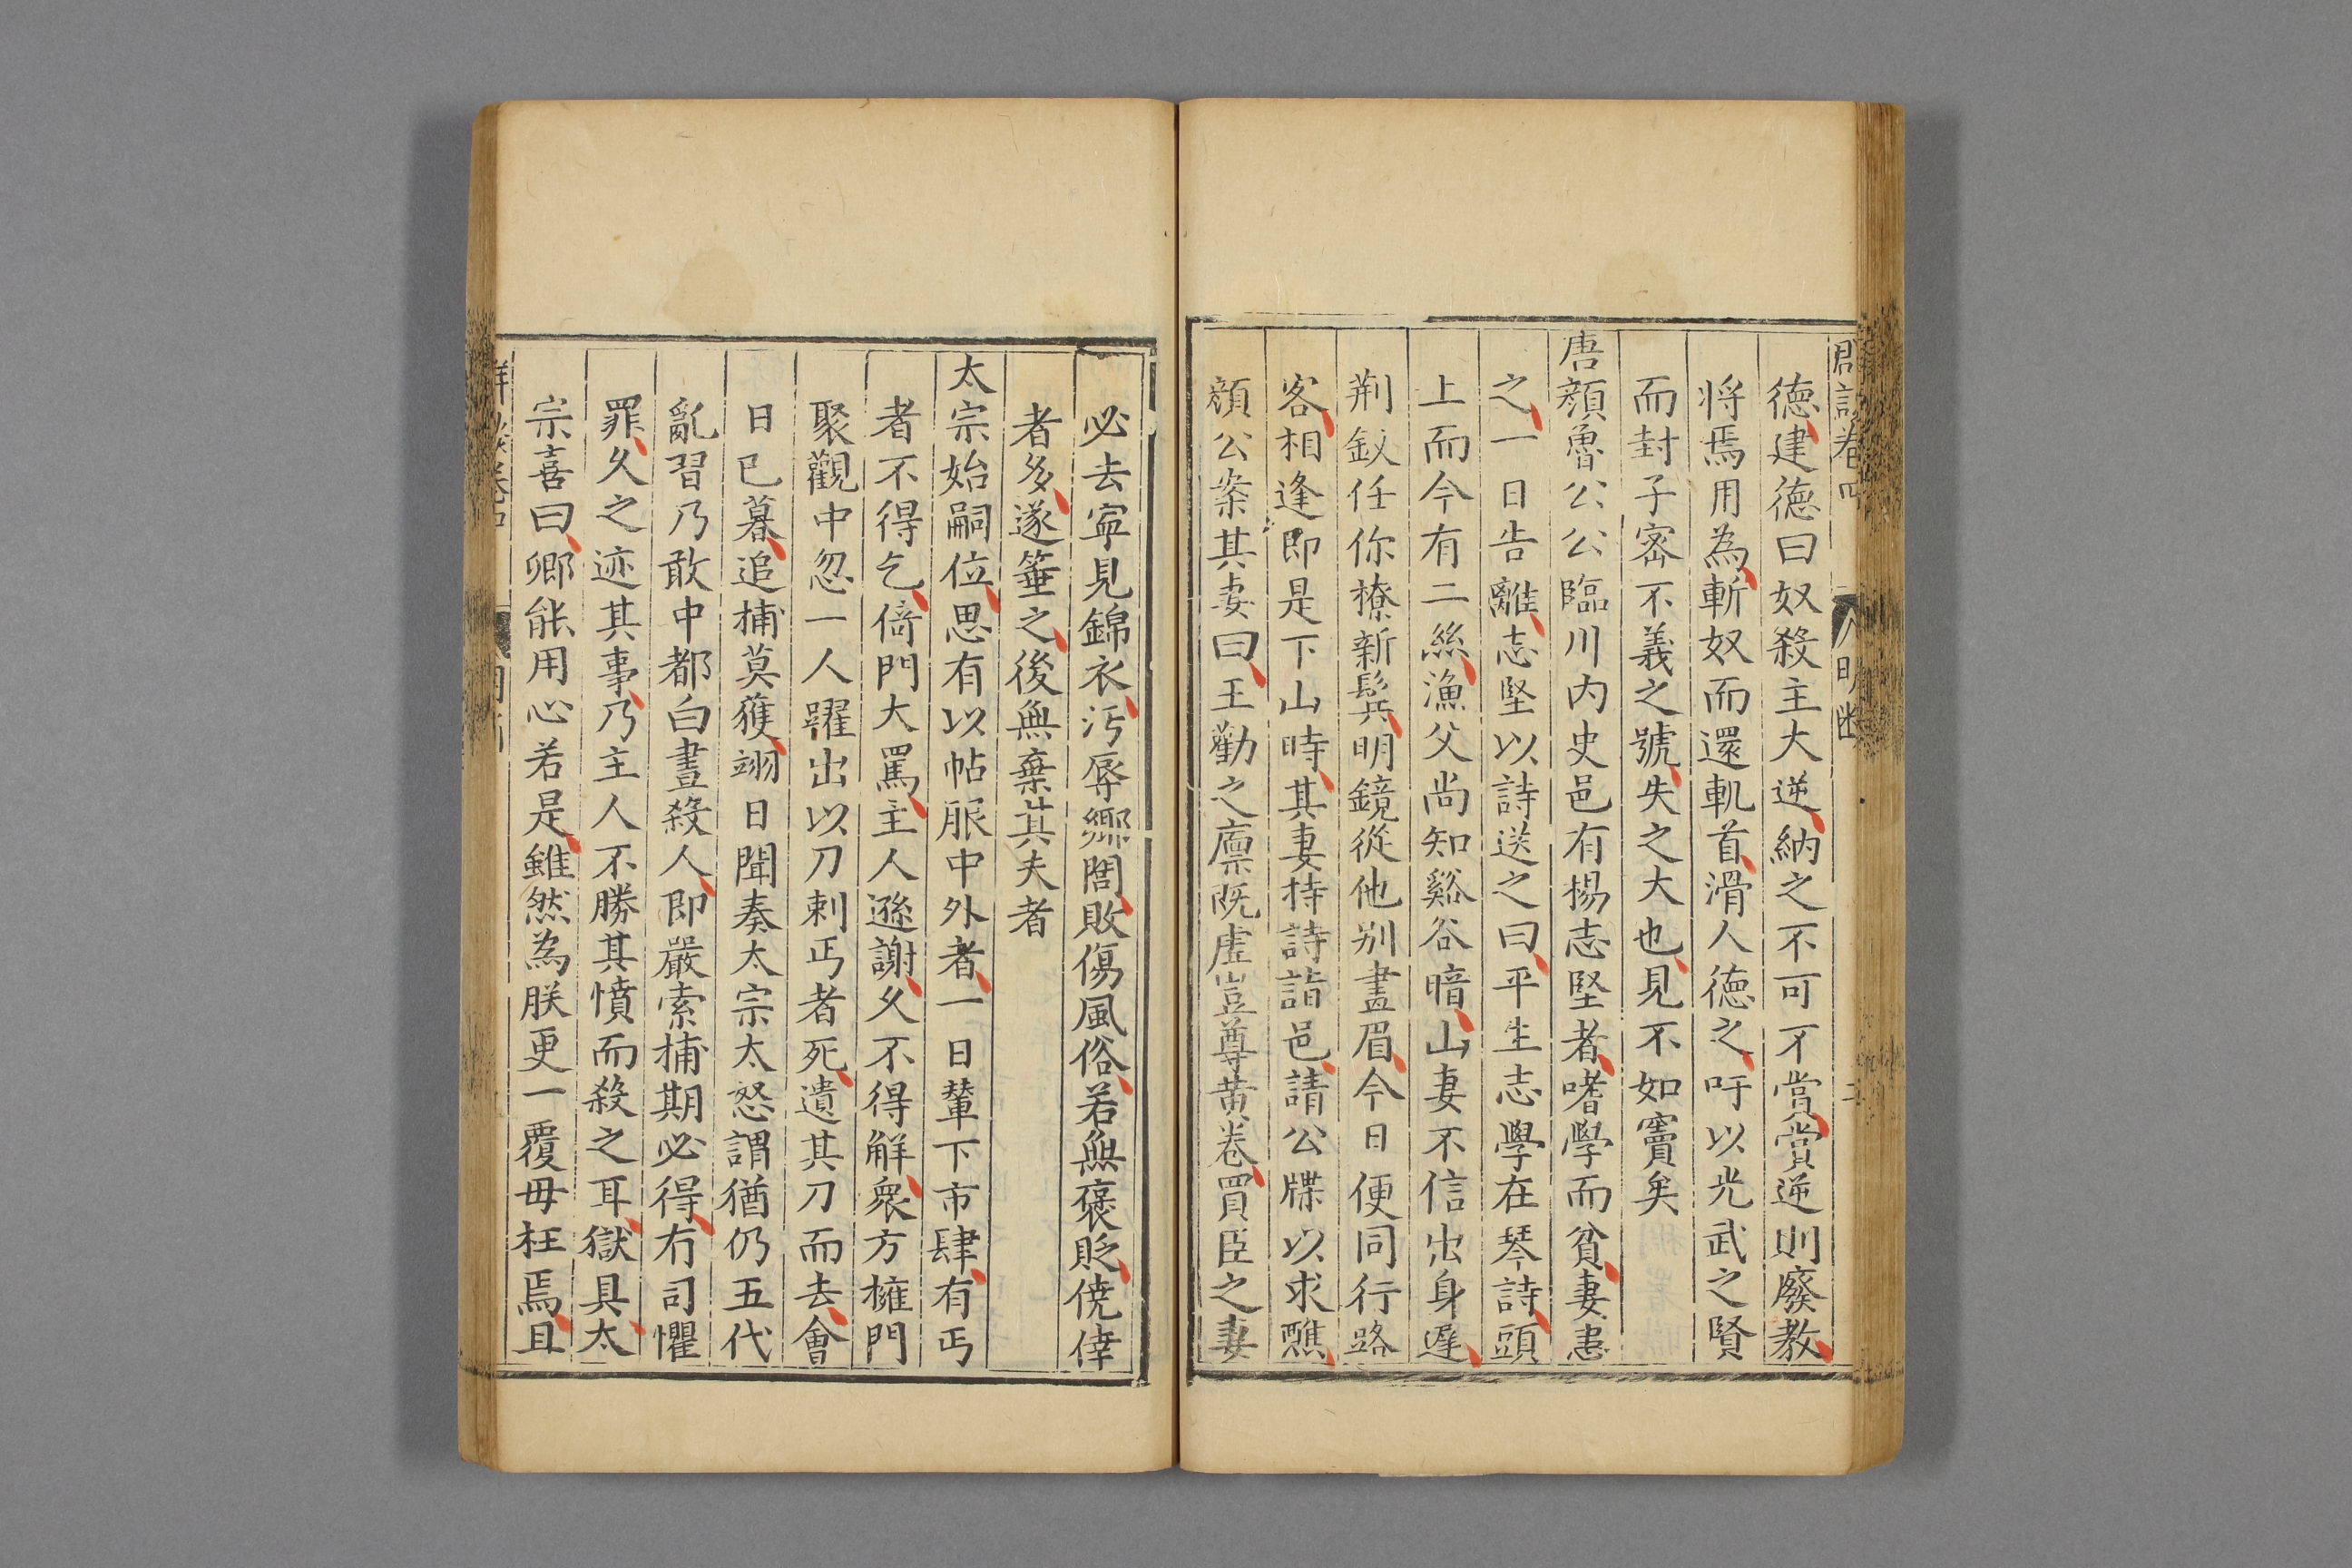 德建德曰奴殺主大逆納之不可不賞賞逆則廢教
將焉用為斬奴而還軌首滑人德之吁以光武之賢
而封子密不義之號失之大也見不如竇矣
唐顏魯公公臨川内史邑有楊志堅者嗜學而貧妻恚
之一日告離志堅以詩送之曰平生志學在琴詩頭
上而今有二絲漁父尚知谿谷暗山妻不信出身遲
荆釵任你撩新鬂明鏡從他别畫眉今日便同行路
客相逢即是下山時其妻持詩詣邑請公牒以求醮
顏公案其妻曰王勸之廪旣虚豈尊黄卷買臣之妻
必去寜見錦衣汚辱鄉閭敗傷風俗若無褒貶僥倖
者多遂箠之後無棄其夫者
太宗始嗣位思有以帖服中外者一日輦下市肆有丐
者不得乞倚門大罵主人遜謝久不得解衆方擁門
聚觀中忽一人躍出以刀刺丐者死遺其刀而去會
日已暮追捕莫獲翊日聞奏太宗太怒謂猶仍五代
亂習乃敢中都白晝殺人即嚴索捕期必得有司懼
罪久之迹其事乃主人不勝其憤而殺之耳獄具太
宗喜曰卿能用心若是雖然為朕更一覆毋枉焉且